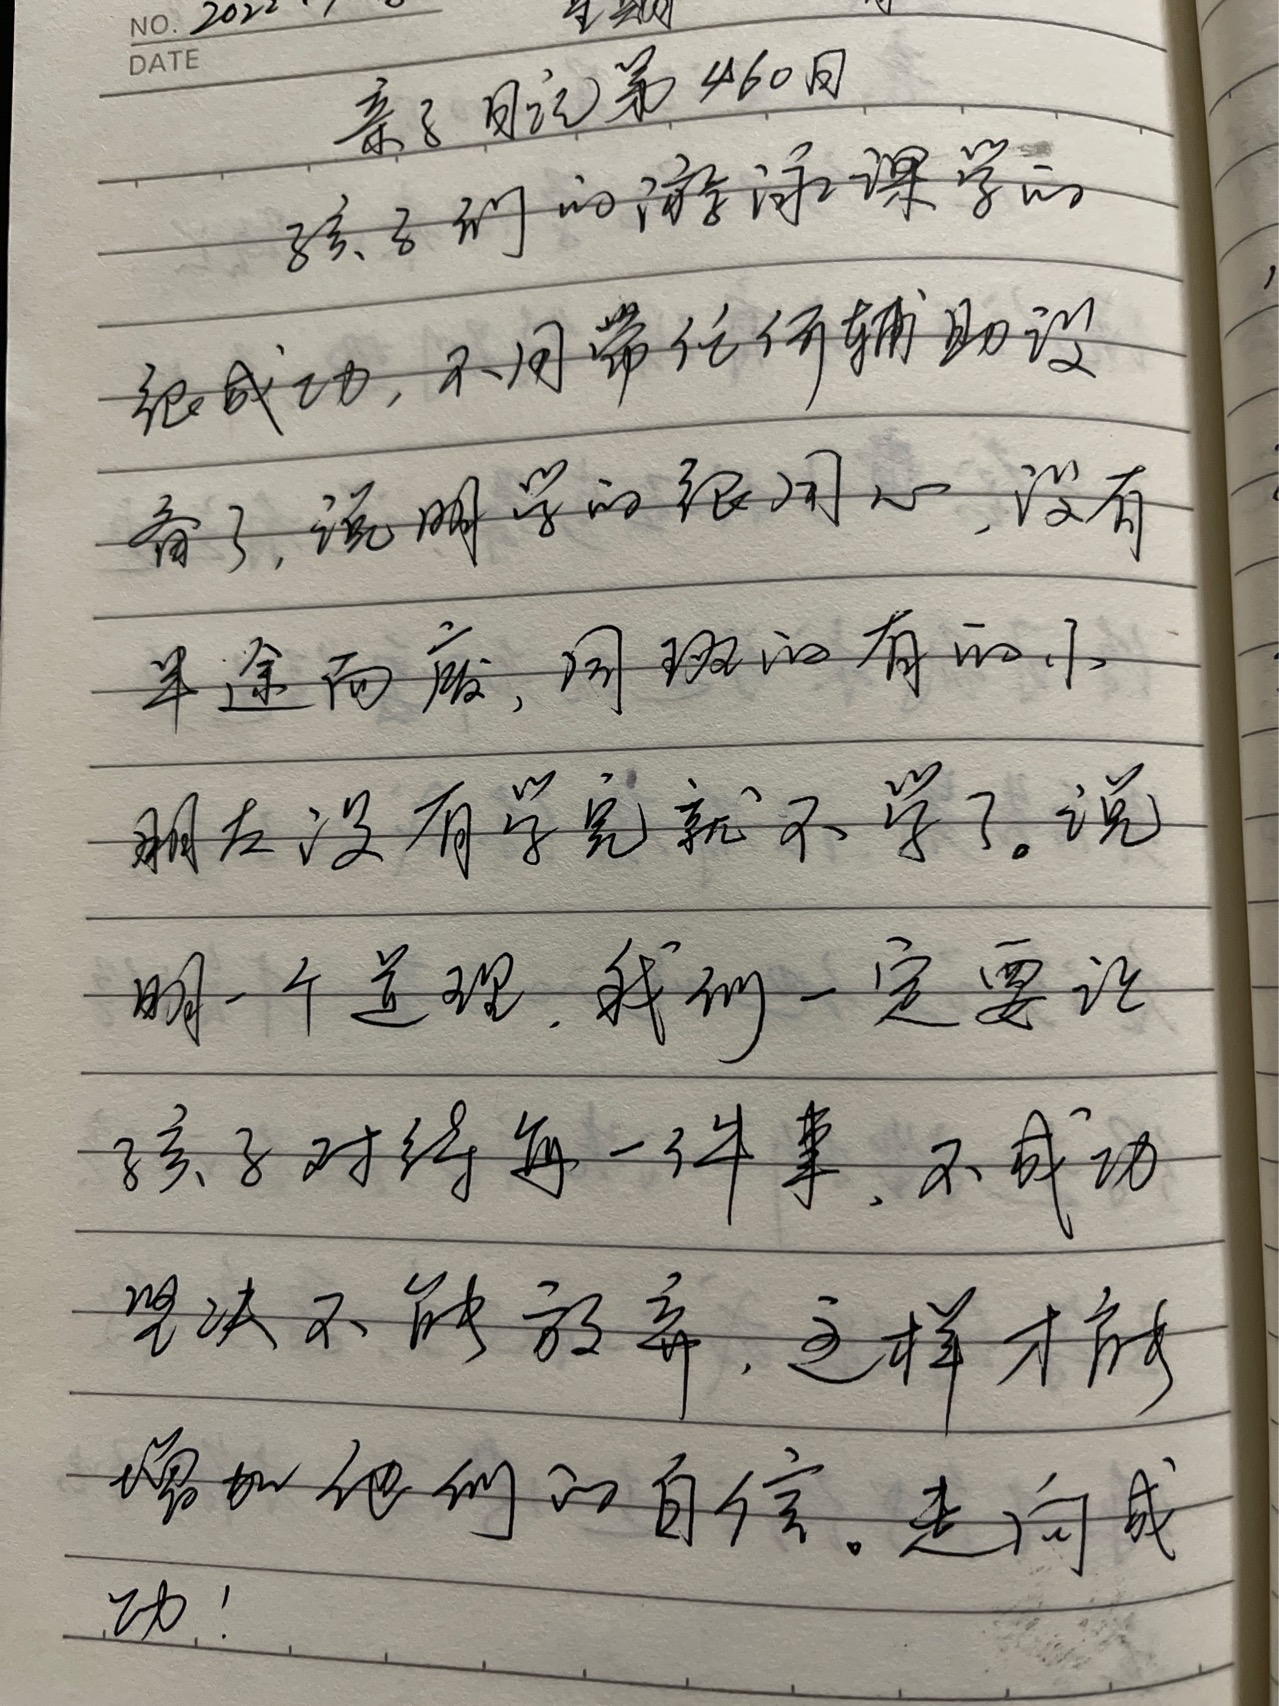 NO. 2022
DATE
亲子日记第460日
孩子们的游泳课学的
很成功,不用带任何辅助设
备了,说明学的很用心,没有
半途而废,同班的有的小
朋友没有学完就不学了。说
明一个道理,我们一定要让
孩子对待每一件事,不成功
坚决不能放弃,这样才能
增加他们的自信。走向成
功!